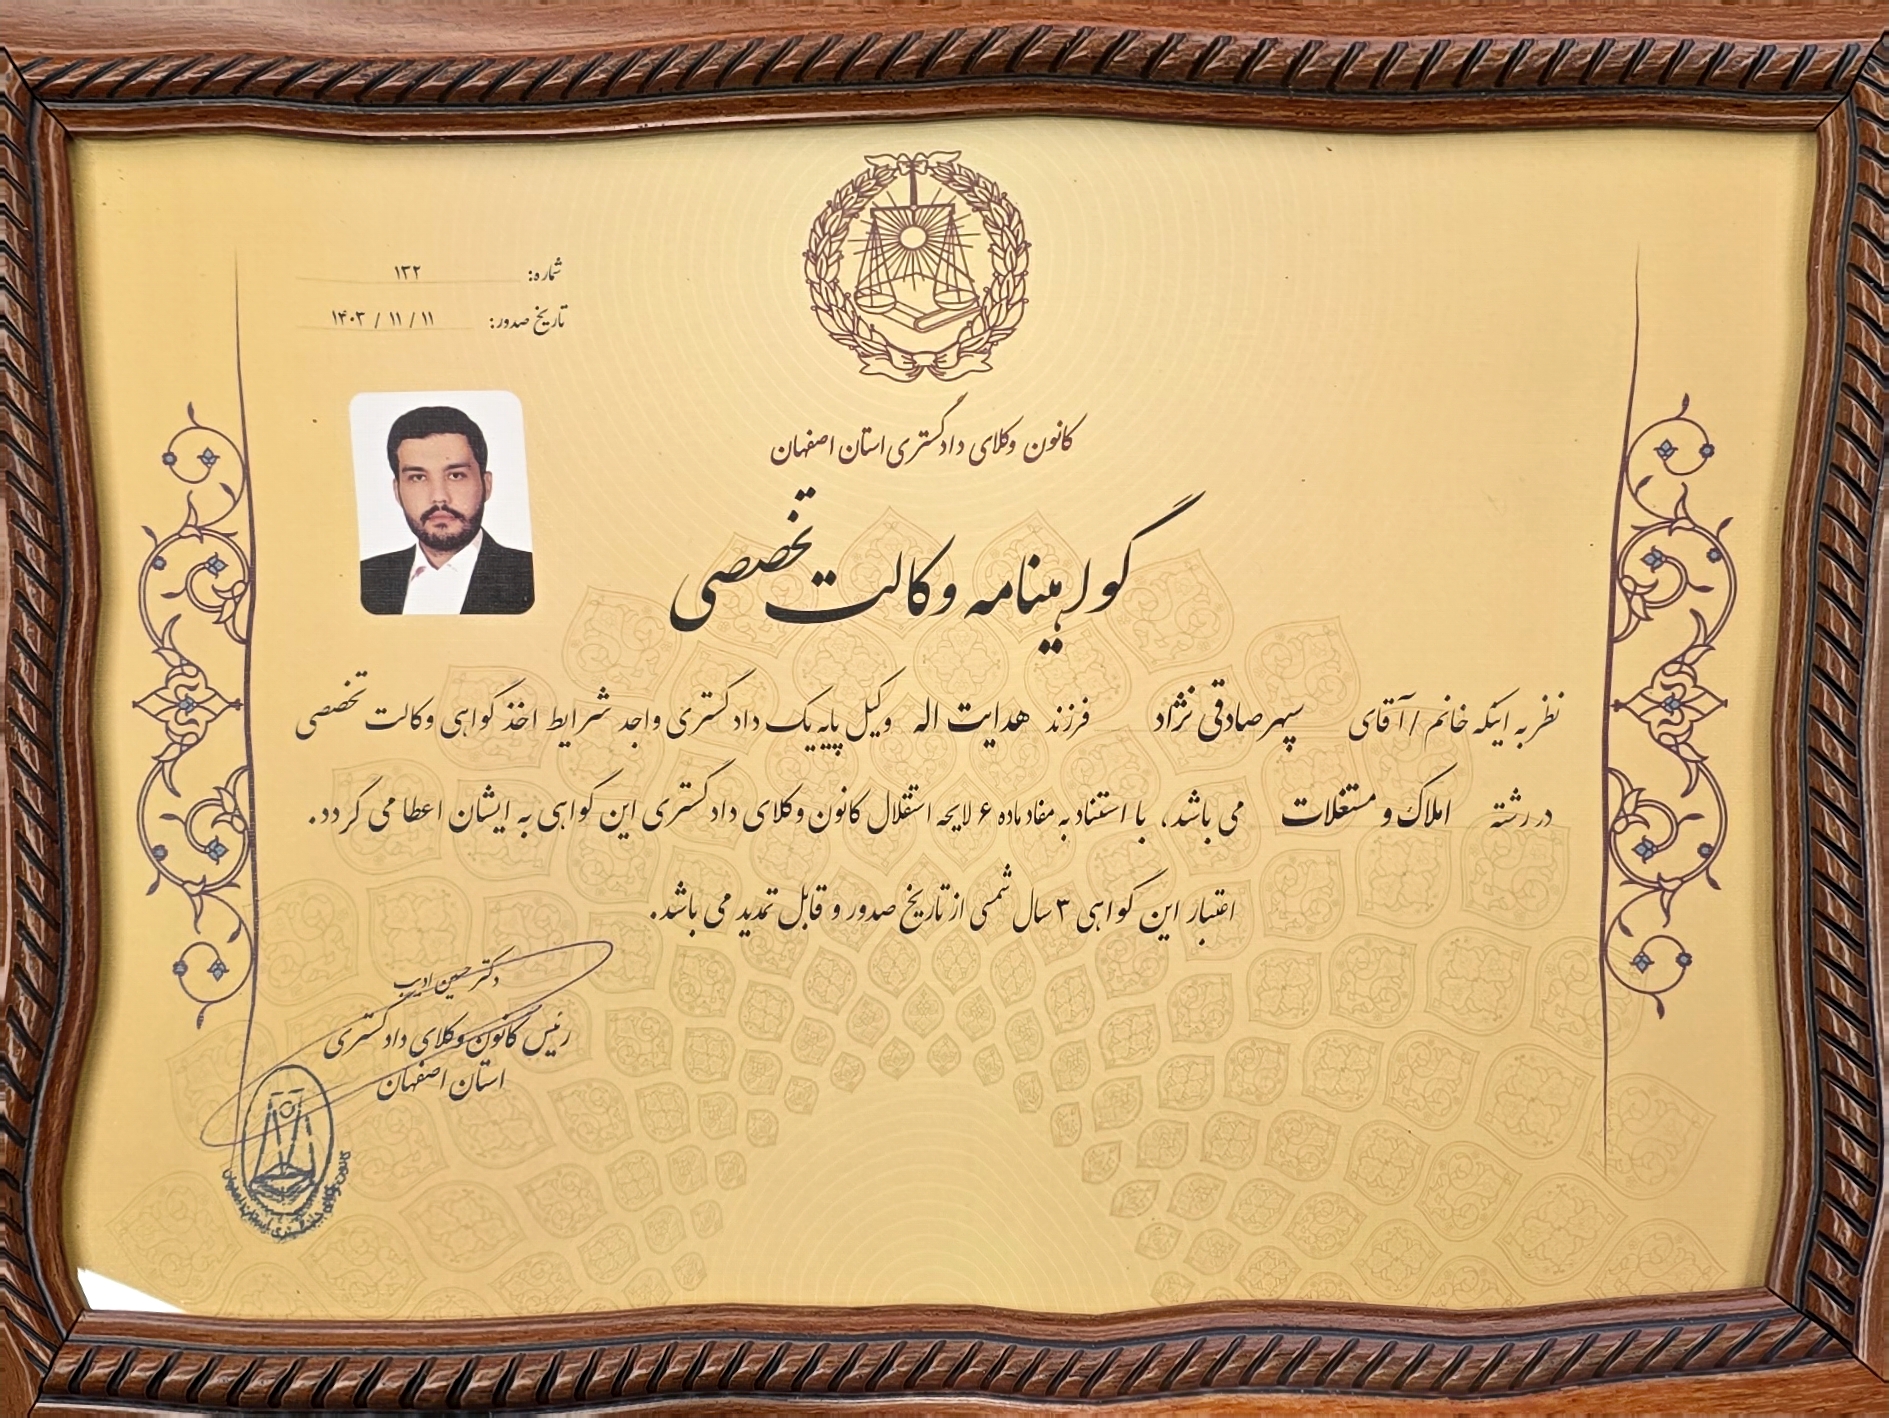 شماره: ۱۳۲
تاریخ صدور: ۱۴۰۳ / ۱۱ / ۱۱
کانون وکلای دادگستری استان اصفهان
گواهینامه وکالت تخصصی
نظر به اینکه خانم / آقای سپهر صادقی نژاد فرزند هدایت اله وکیل پایه یک دادگستری واجد شرایط اخذ گواهی وکالت تخصصی
در رشته املاک و مستغلات می باشد، با استناد به مفاد ماده ۶ لایحه استقلال کانون وکلای دادگستری این گواهی به ایشان اعطا می گردد.
اعتبار این گواهی ۳ سال شمسی از تاریخ صدور و قابل تمدید می باشد.
دکتر حسین ادیب
رئیس کانون وکلای دادگستری
استان اصفهان
کانون وکلای دادگستری استان اصفهان